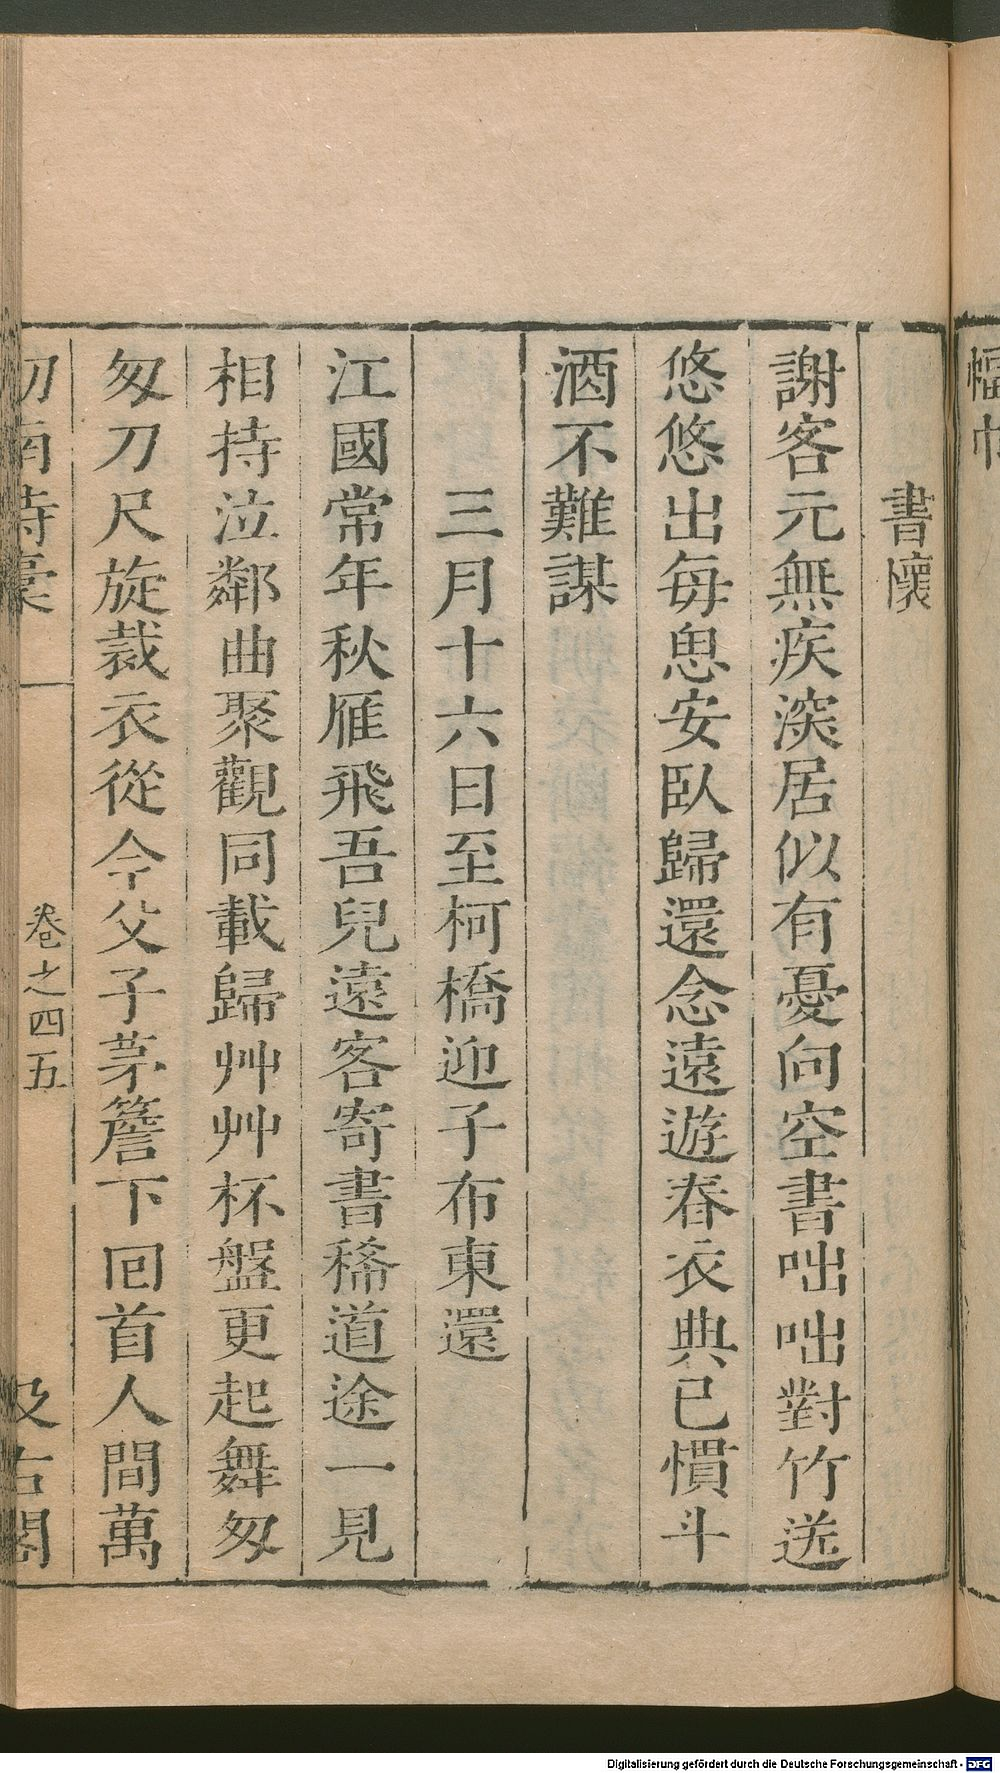 幅巾
書懷
謝客元無疾深居似有憂向空書咄咄對竹送
悠悠出每思安臥歸還念遠遊春衣典已慣斗
酒不難謀
三月十六日至柯橋迎子布東還
江國常年秋雁飛吾兒遠客寄書稀道途一見
相持泣鄰曲聚觀同載歸艸艸杯盤更起舞匆
匆刀尺旋裁衣從今父子茅簷下回首人間萬
劒南詩稾 卷之四五 汲古閣
Digitalisierung gefördert durch die Deutsche Forschungsgemeinschaft - DFG